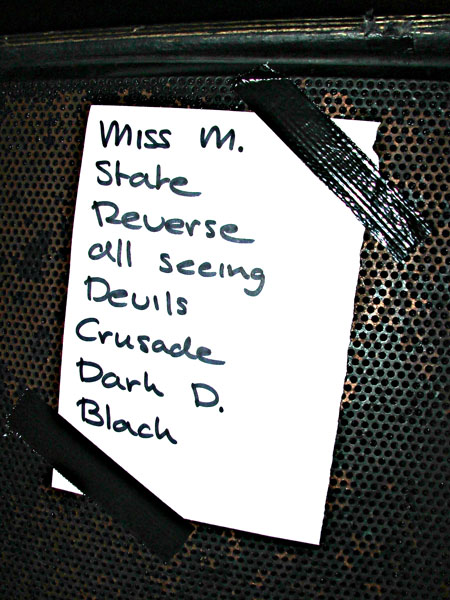 Miss M.
State
Reverse
all seeing
Devils
Crusade
Dark D.
Black